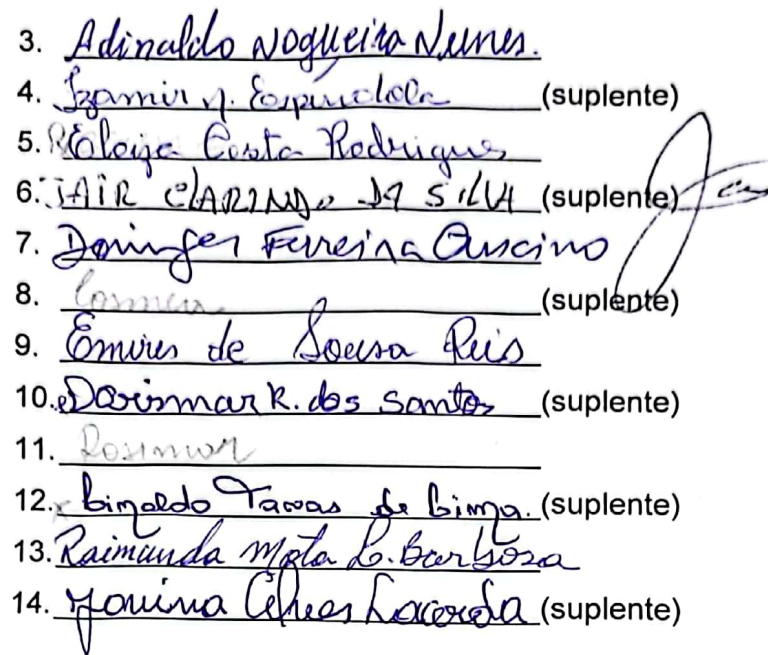 3. Adinaldo Nogueira Nunes.
4. Izamir n. Espindola (suplente)
5. Eloiza Costa Rodrigues
6. JAIR CLARINDO DA SILVA (suplente)
7. Ferreira
8. (suplente)
9. de Sousa Reis
10. Dorismar R. dos Santos (suplente)
11. Rosimar
12. de Lima. (suplente)
13. Raimunda Mota L. Barbosa
14. Lacerda (suplente)